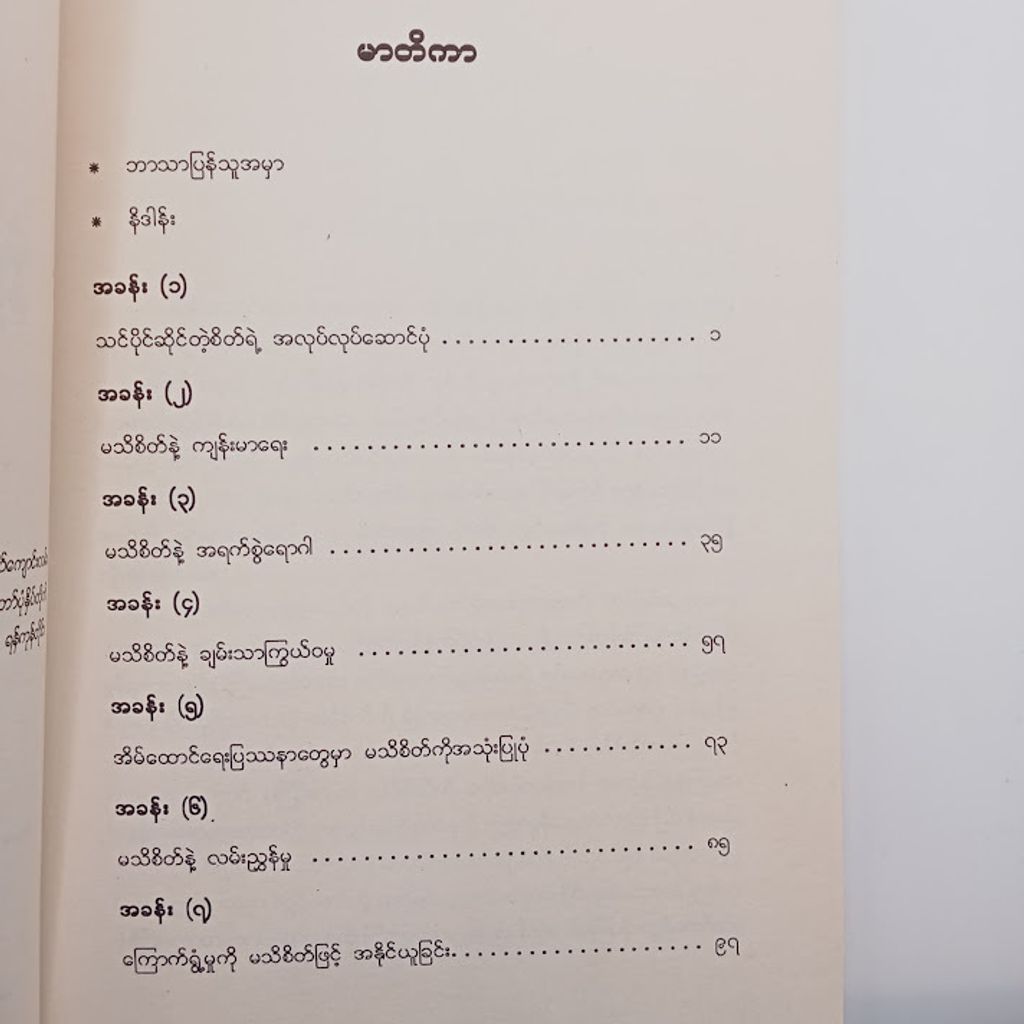 မာတိကာ
* ဘာသာပြန်သူအမှာ
* နိဒါန်း
အခန်း (၁)
သင်ပိုင်ဆိုင်တဲ့စိတ်ရဲ့ အလုပ်လုပ်ဆောင်ပုံ .................... ၁
အခန်း (၂)
မသိစိတ်နဲ့ ကျန်းမာရေး ............................. ၁၁
အခန်း (၃)
မသိစိတ်နဲ့ အရက်စွဲရောဂါ ............................ ၃၅
အခန်း (၄)
မသိစိတ်နဲ့ ချမ်းသာကြွယ်ဝမှု .......................... ၅၇
အခန်း (၅)
အိမ်ထောင်ရေးပြဿနာတွေမှာ မသိစိတ်ကိုအသုံးပြုပုံ ............ ၇၃
အခန်း (၆)
မသိစိတ်နဲ့ လမ်းညွှန်မှု .............................. ၈၅
အခန်း (၇)
ကြောက်ရွံ့မှုကို မသိစိတ်ဖြင့် အနိုင်ယူခြင်း.................... ၉၇